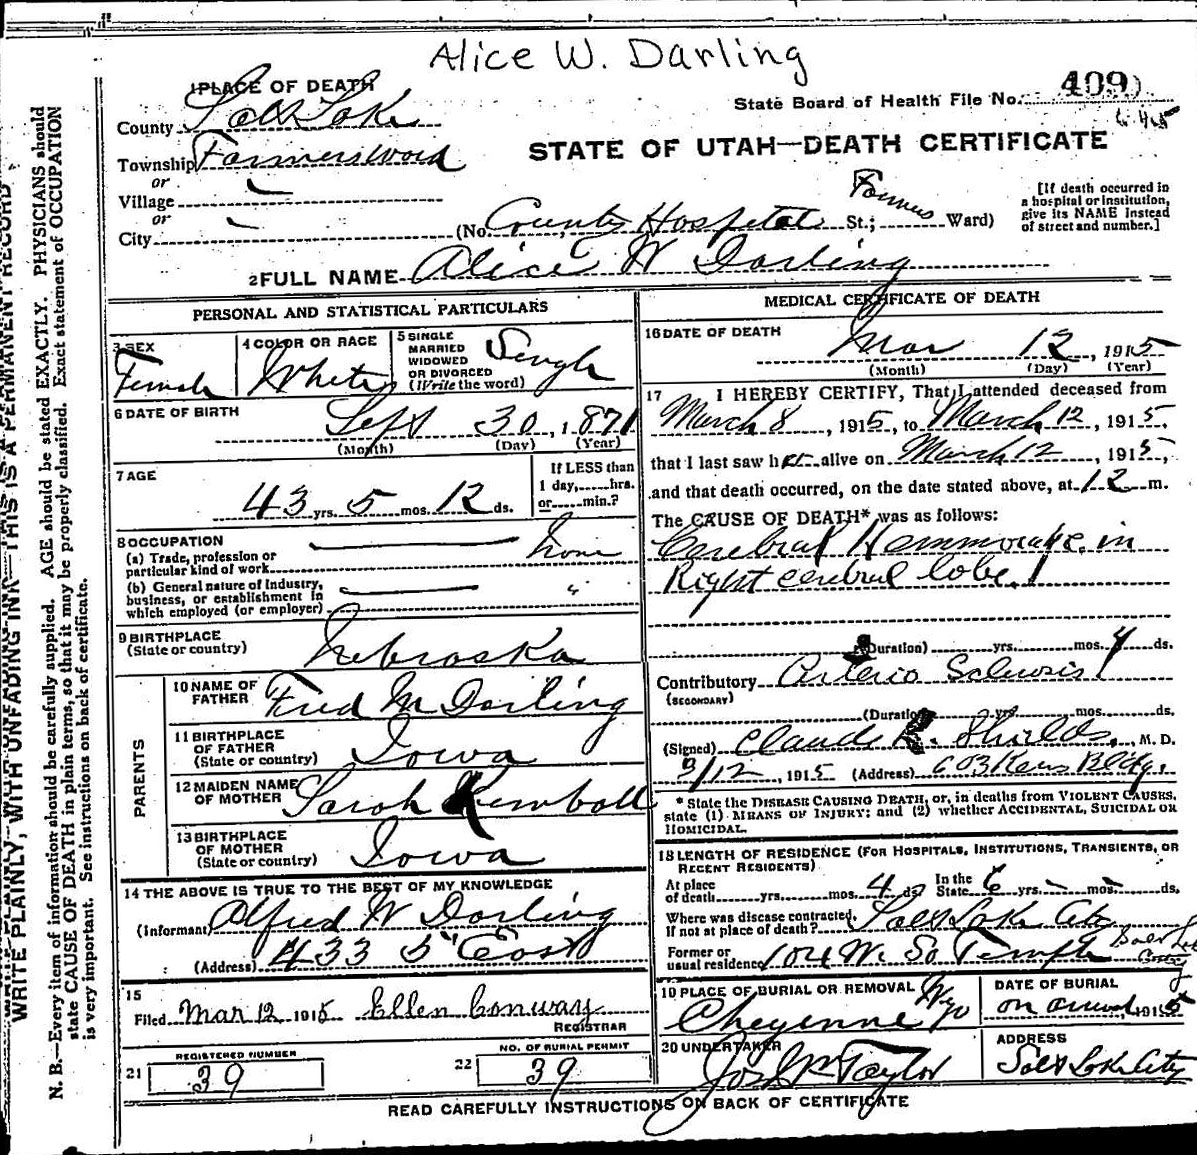 Alice W. Darling
1 PLACE OF DEATH
State Board of Health File No. 409
County Salt Lake
Township Farmersward
STATE OF UTAH—DEATH CERTIFICATE
or
Village
or
City (No. County Hospital St.; Farmers Ward)
[If death occurred in
a hospital or institution,
give its NAME instead
of street and number.]
2 FULL NAME Alice W Darling
PERSONAL AND STATISTICAL PARTICULARS
3 SEX
Female
4 COLOR OR RACE
White
5 SINGLE
MARRIED
WIDOWED
OR DIVORCED
(Write the word)
Single
6 DATE OF BIRTH
Sept 30, 1871
(Month) (Day) (Year)
7 AGE
43 yrs. 5 mos. 12 ds.
If LESS than
1 day,......hrs.
or......min.?
8 OCCUPATION
(a) Trade, profession or
particular kind of work none
(b) General nature of Industry,
business, or establishment in
which employed (or employer) "
9 BIRTHPLACE
(State or country) Nebraska
PARENTS
10 NAME OF
FATHER Fred M Darling
11 BIRTHPLACE
OF FATHER
(State or country) Iowa
12 MAIDEN NAME
OF MOTHER Sarah Kemball
13 BIRTHPLACE
OF MOTHER
(State or country) Iowa
14 THE ABOVE IS TRUE TO THE BEST OF MY KNOWLEDGE
(Informant) Alfred W Darling
(Address) 433 5" East
15
Filed Mar 12 1915 Ellen Conway
REGISTRAR
REGISTERED NUMBER
21 39
NO. OF BURIAL PERMIT
22 39
MEDICAL CERTIFICATE OF DEATH
16 DATE OF DEATH
Mar 12, 1915
(Month) (Day) (Year)
17 I HEREBY CERTIFY, That I attended deceased from
March 8, 1915, to March 12, 1915,
that I last saw her alive on March 12, 1915,
and that death occurred, on the date stated above, at 12 m.
The CAUSE OF DEATH* was as follows:
Cerebral Hemmorage in
Right cerebral lobe.
(Duration) yrs. mos. 4 ds.
Contributory Arterio Sclerosis
(SECONDARY)
(Duration) yrs. mos. ds.
(Signed) Claude Shields, M. D.
3/12, 1915 (Address) 603 Kerns Bldg.
* State the DISEASE CAUSING DEATH, or, in deaths from VIOLENT CAUSES,
state (1) MEANS OF INJURY; and (2) whether ACCIDENTAL, SUICIDAL OR
HOMICIDAL.
18 LENGTH OF RESIDENCE (FOR HOSPITALS, INSTITUTIONS, TRANSIENTS, OR
RECENT RESIDENTS)
At place
of death yrs. mos. 4 ds. In the State 6 yrs. – mos. – ds.
Where was disease contracted,
If not at place of death? Salt Lake City
Former or
usual residence 104 W. So Temple
19 PLACE OF BURIAL OR REMOVAL
Cheyenne Wyo
DATE OF BURIAL
on arrival, 1915
20 UNDERTAKER
Jos Wm Taylor
ADDRESS
Salt Lake City
READ CAREFULLY INSTRUCTIONS ON BACK OF CERTIFICATE
WRITE PLAINLY, WITH UNFADING INK—THIS IS A PERMANENT RECORD
N. B.—Every item of information should be carefully supplied. AGE should be stated EXACTLY. PHYSICIANS should
state CAUSE OF DEATH in plain terms, so that it may be properly classified. Exact statement of OCCUPATION
is very important. See instructions on back of certificate.